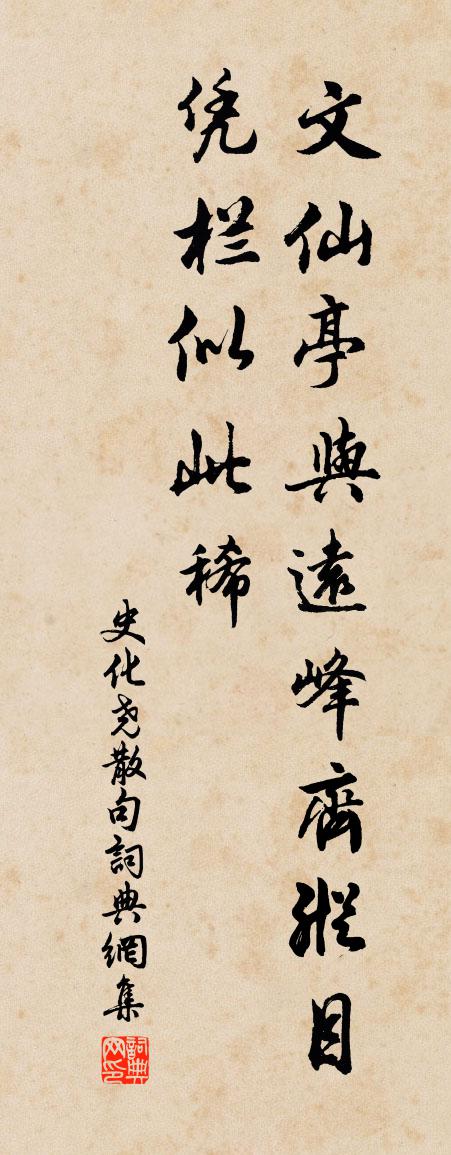 文仙亭與遠峰齊縱目
凭栏似此稀
史化尧散句詞典網集
詞典网印